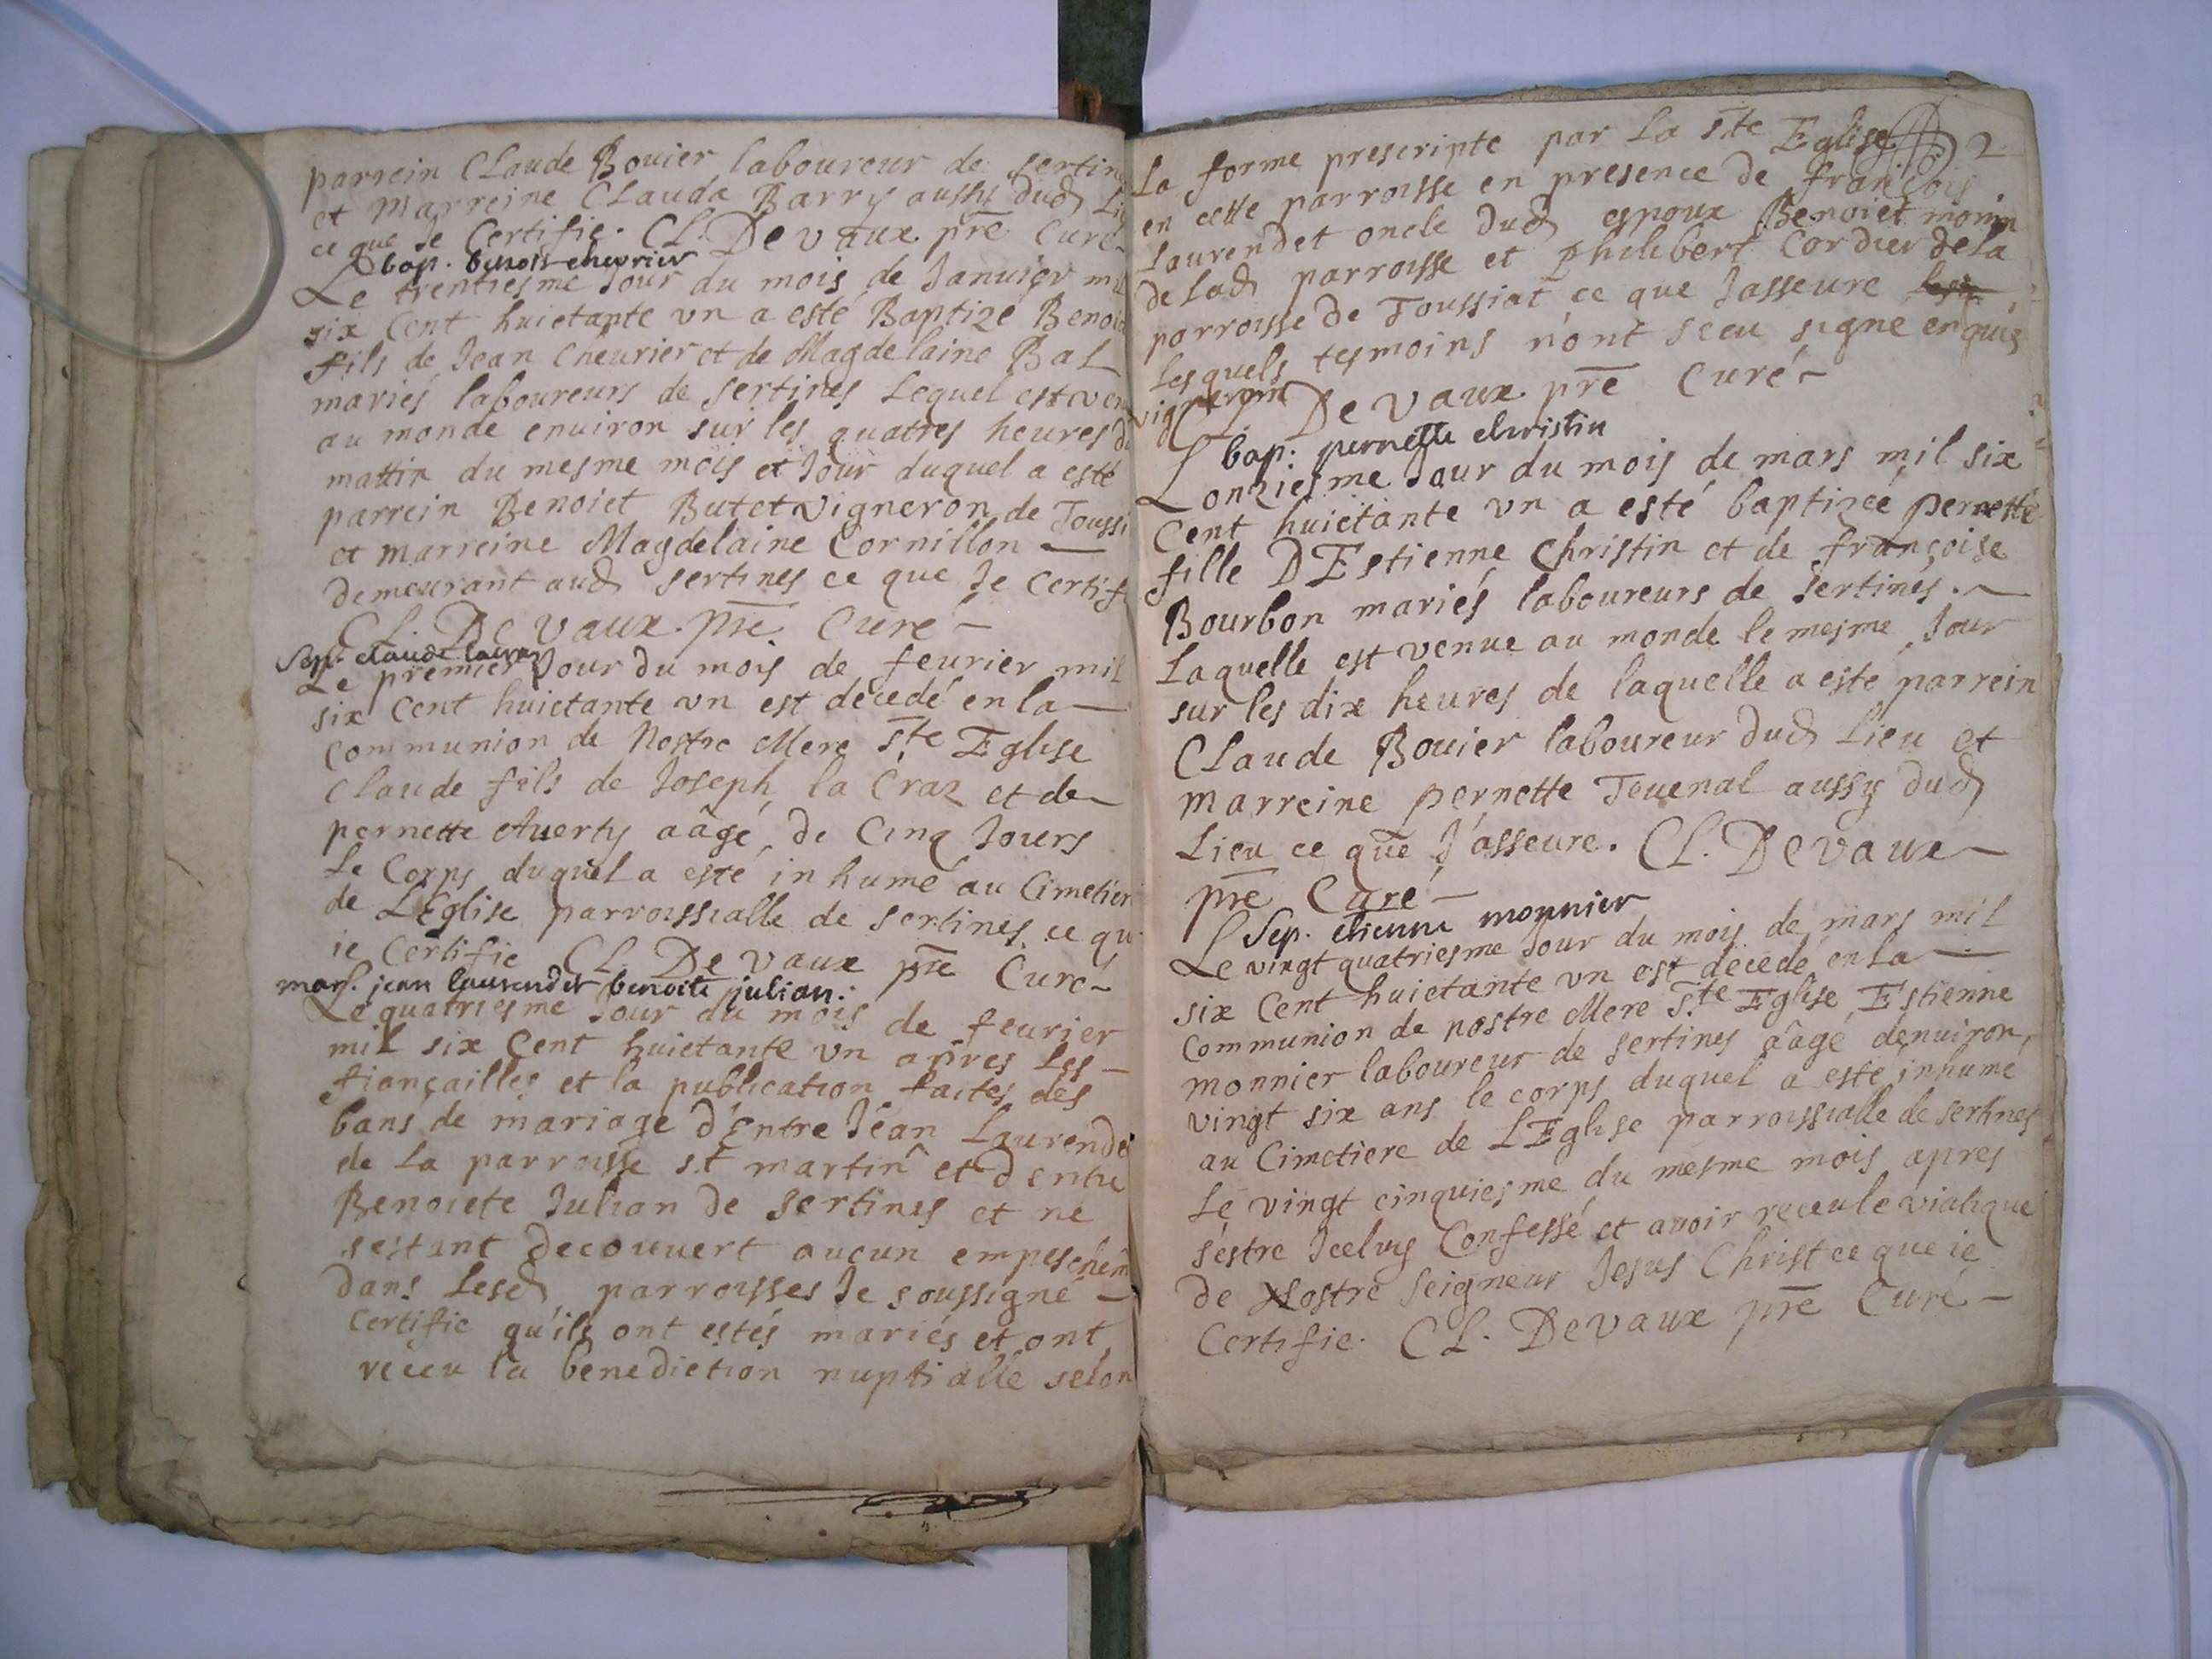 parrein Claude Bouier laboureur de sertin
et marreine Clauda Barry aussy dud Li
ce que Je Certifie. CL. Devaux pre Curé
bap. benoit chevrier
Le trentiesme Jour du mois de Januier mil
six Cent huictante vn a esté Baptize Benoi
fils de Jean Cheurier et de Magdelaine Bal
mariés laboureurs de sertines Lequel est ven
au monde enuiron sur les quatres heures d
mattin du mesme mois et Jour duquel a esté
parrein Benoict Butet vigneron de Toussi
et marreine Magdelaine Cornillon
demeurant aud sertines ce que Je Certif
CL. Devaux pre Curé
Sep. claude lacraz
Le premier Jour du mois de feurier mil
six Cent huictante vn est décedé en la
Communion de Nostre Mere Ste Eglise
Claude fils de Joseph la Craz et de
pernette Auerty aâgé de Cinq Jours
Le Corps duquel a esté inhumé au Cimetier
de L'Eglise parroissialle de sertines ce qu
ie Certifie CL. Devaux pre Curé
mar. jean laurendet benoite julian.
Le quatriesme Jour du mois de feurier
mil six Cent huictante vn apres les
fiançailles et la publication faites des
bans de mariage d'Entre Jéan Laurende
de La parroisse st martin et d'entre
Benoicte Julian de sertines et ne
sestant decouuert aucun empeschem
dans Lesd parroisses Je soussigné
Certifie qu'ils ont estés mariés et ont
receu la benediction nuptialle selon
La forme prescripte par La Ste Eglise 2
en cette parroisse en presence de françois
Laurendet oncle dud espoux Benoict monin
de lad parroisse et philibert Cordier de la
parroisse de Toussiat ce que Jasseure
Lesquels tesmoins n'ont sceu signe enquis
vignerons
CL. Devaux pre Curé
bap. pernette christin
L'onziesme Jour du mois de mars mil six
Cent huictante vn a esté baptizée pernette
fille D'Estienne Christin et de françoise
Bourbon mariés laboureurs de sertines.
Laquelle est venue au monde le mesme Jour
sur les dix heures de laquelle a esté parrein
Claude Bouier laboureur dud Lieu et
marreine pernette Teuenal aussy dud
Lieu ce que J'asseure. CL. Devaux
pre Curé
Sep. etienne monnier
Le vingt quatriesme Jour du mois de mars mil
six Cent huictante vn est décedé en La
Communion de nostre Mere Ste Eglise Estienne
monnier laboureur de sertines aâgé denuiron
vingt six ans le corps duquel a esté inhumé
au Cimetiere de L'Eglise parroissialle de sertines
Le vingt cinquiesme du mesme mois apres
s'estre Iceluy Confessé et auoir receu le viatique
de Nostre Seigneur Jesus Christ ce que ie
Certifie. CL. Devaux pre Curé